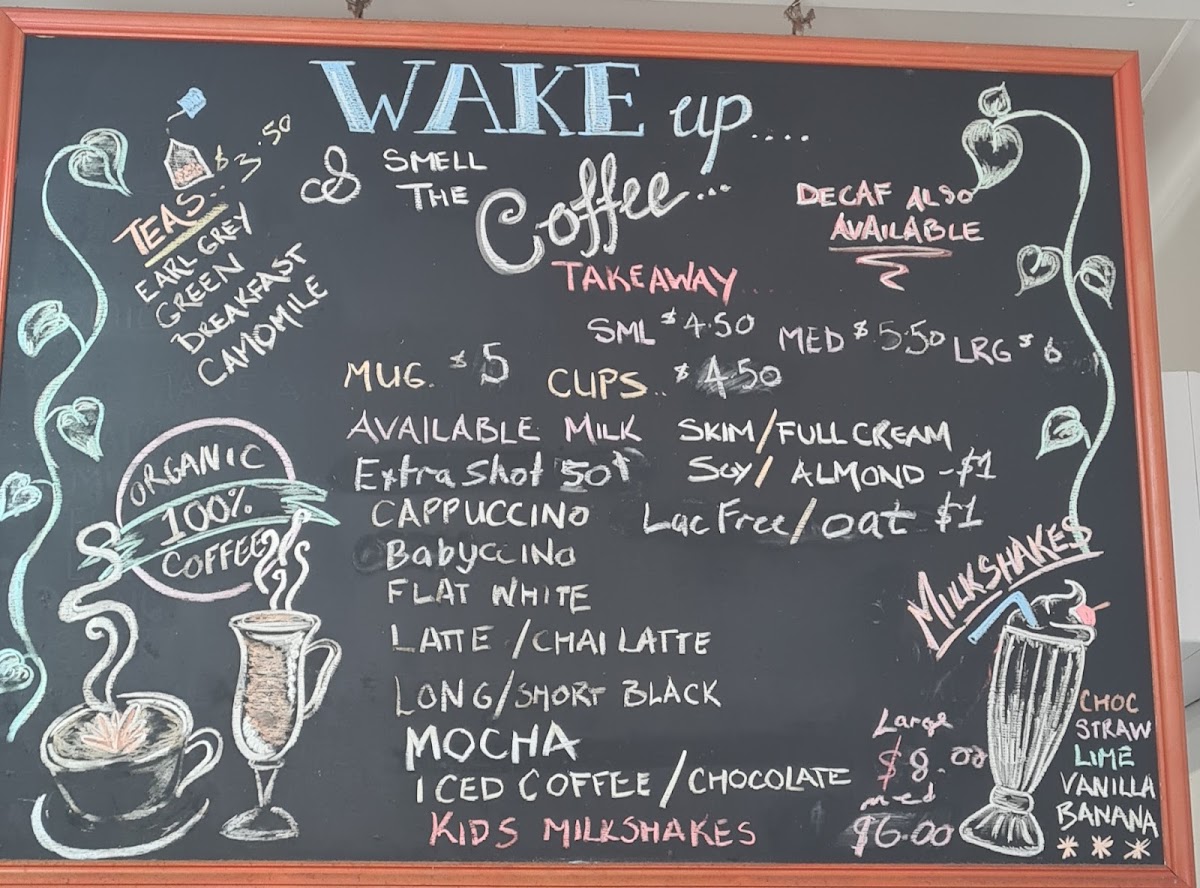 WAKE up....
& SMELL THE Coffee...
$3.50
TEAS..
EARL GREY
GREEN
BREAKFAST
CAMOMILE
DECAF ALSO
AVAILABLE
TAKEAWAY
SML $4.50 MED $5.50 LRG $6
MUG. $5 CUPS.. $4.50
AVAILABLE MILK SKIM/FULL CREAM
Extra Shot 50¢ SOY/ ALMOND -$1
CAPPUCCINO Lac Free/oat $1
BabyccINO
FLAT WHITE
LATTE /CHAI LATTE
LONG/SHORT BLACK
MOCHA
ICED COFFEE/CHOCOLATE
KIDS MILKSHAKES
ORGANIC
100%
COFFEE
MILKSHAKES
Large
$8.00
med
$6.00
CHOC
STRAW
LIME
VANILLA
BANANA
* * *